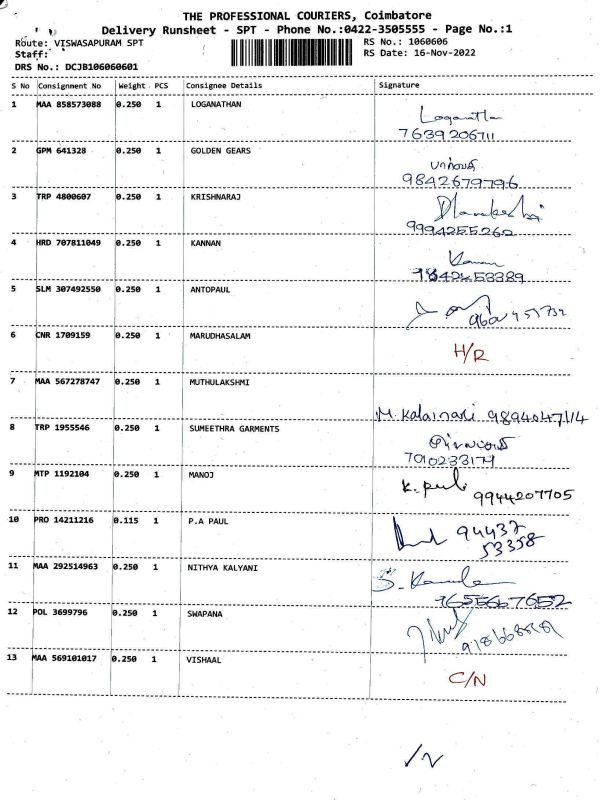 THE PROFESSIONAL COURIERS, Coimbatore
Delivery Runsheet - SPT - Phone No.:0422-3505555 - Page No.:1
Route: VISWASAPURAM SPT
RS No.: 1060606
Staff:
RS Date: 16-Nov-2022
DRS No.: DCJB106060601
S No Consignment No Weight PCS Consignee Details Signature
1 MAA 858573088 0.250 1 LOGANATHAN Loganatha
7639206711
2 GPM 641328 0.250 1 GOLDEN GEARS
9842679796
3 TRP 4800607 0.250 1 KRISHNARAJ
9994255262
4 HRD 707811049 0.250 1 KANNAN
9842453389
5 SLM 307492550 0.250 1 ANTOPAUL
6 CNR 1709159 0.250 1 MARUDHASALAM H/R
7 MAA 567278747 0.250 1 MUTHULAKSHMI
M. Kalaivani 9894047114
8 TRP 1955546 0.250 1 SUMEETHRA GARMENTS
7010233179
9 MTP 1192104 0.250 1 MANOJ K.
9944207705
10 PRO 14211216 0.115 1 P.A PAUL 94437
53358
11 MAA 292514963 0.250 1 NITHYA KALYANI
9655667652
12 POL 3699796 0.250 1 SWAPANA
13 MAA 569101017 0.250 1 VISHAAL C/N